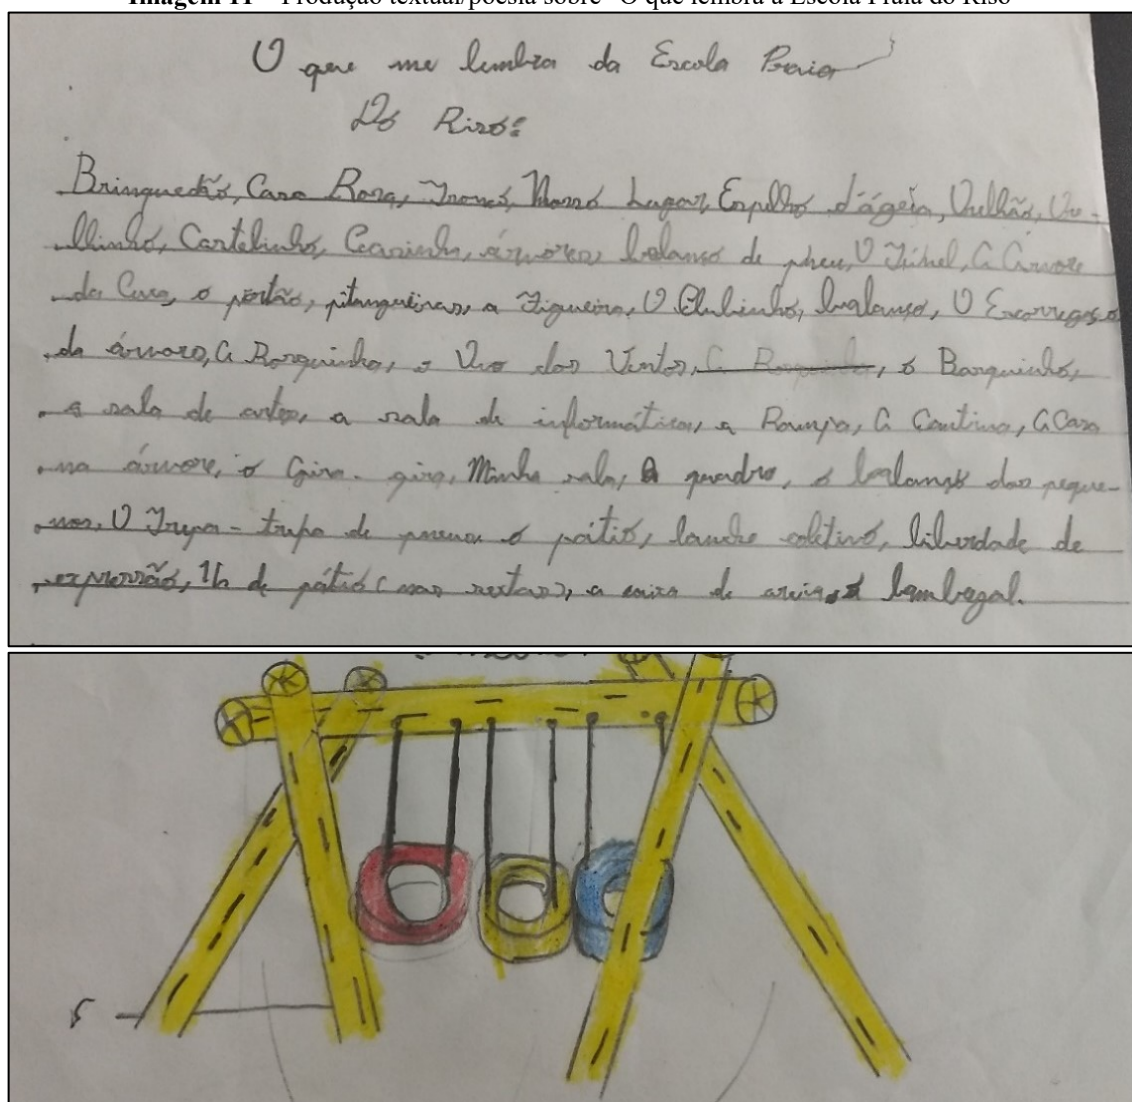 Imagem 11 – Produção textual/poesia sobre "O que lembra a Escola Praia do Riso"
O que me lembra da Escola Praia
Do Riso:
Brinquedão, Casa Rosa, Tronco, Nosso Lugar, Espelho d'água, Vulhão, Vu-
llinho, Castelinho, Casinha, árvores, balanso de pneu, O Túnel, A Árvore
da Casa, o portão, pitangueiras, a Figueira, O Clubinho, balanso, O Escorrega
da árvore, A Barquinha, o Vuo dos Ventos, o Barquinho,
a sala de artes, a sala de informática, a Rampa, A Cantina, A Casa
na árvore, o Gira-gira, Minha sala, A quadra, o balanso dos peque-
nos, O Trepa-trepa de pneus o pátio, lanche coletivo, liberdade de
expressão, 1h de pátio (nas sextas), a caixa de areia,